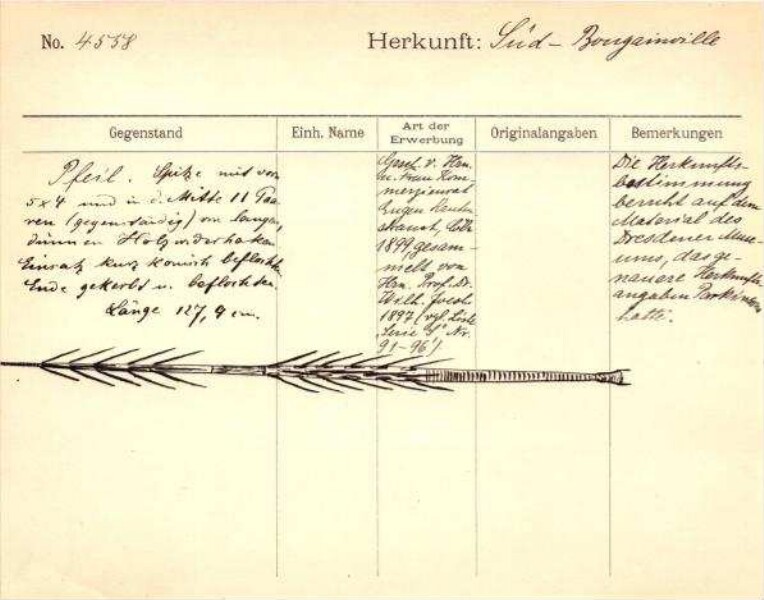 No. 4538
Herkunft: Süd-Bougainville
Gegenstand
Einh. Name
Art der Erwerbung
Originalangaben
Bemerkungen
Pfeil. Spitze mit vorn
5x4 und in d. Mitte 11 Paa-
ren (gegenständig) von langen,
dünnen Holzwiderhaken.
Einsatz kurz konisch beflochten.
Ende gekerbt u. beflochten.
Länge 127,9 cm.
Gesch. v. Hrn.
u. Frau Kom-
merzienrat
Eugen Rauten-
strauch, Cöln
1899, gesam-
melt von
Hrn. Prof. Dr.
Wilh. Joest
1897 (vgl. Liste
"Serie S" Nr.
91-96)
Die Herkunfts-
bestimmung
beruht auf dem
Material des
Dresdener Muse-
ums, das ge-
nauere Herkunfts-
angaben Parkinsons
hatte.